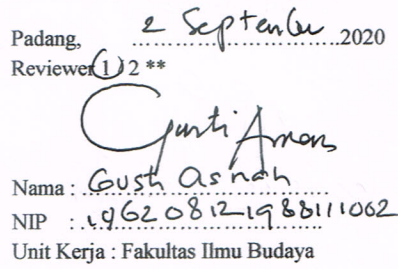 Padang, 2 September 2020
Reviewer 1 / 2 **
Gusti Asnan
Nama : Gusti Asnan
NIP : 196208121988111002
Unit Kerja : Fakultas Ilmu Budaya